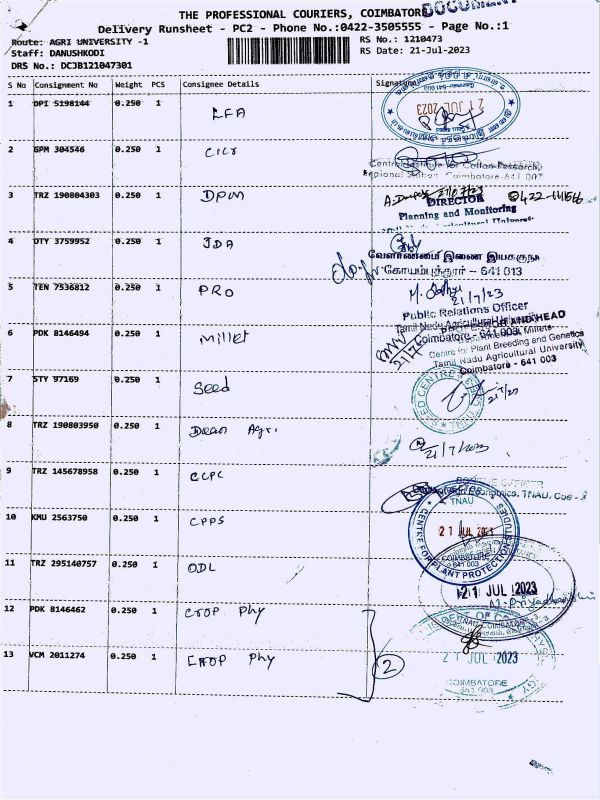 DOCUMENT
THE PROFESSIONAL COURIERS, COIMBATORE
Delivery Runsheet - PC2 - Phone No.:0422-3505555 - Page No.:1
Route: AGRI UNIVERSITY -1
RS No.: 1210473
Staff: DANUSHKODI
RS Date: 21-Jul-2023
DRS No.: DCJB121047301
S No Consignment No Weight PCS Consignee Details Signature
1 DPI 5198144 0.250 1 LFA
21 JUL 2023
2 GPM 304546 0.250 1 CICR
Central Institute for Cotton Research,
Regional Station, Coimbatore-641 003
3 TRZ 190804303 0.250 1 DPM
21/07/23
DIRECTOR
Planning and Monitoring
Tamil Nadu Agricultural University
4 DTY 3759952 0.250 1 JDA
வேளாண்மை இணை இயக்குநர்
கோயம்புத்தூர் - 641 013
5 TEN 7536812 0.250 1 PRO
21/7/23
Public Relations Officer
Tamil Nadu Agricultural University
Coimbatore - 641 003
6 PDK 8146494 0.250 1 Millet
PROFESSOR AND HEAD
Department of Millets
Centre for Plant Breeding and Genetics
Tamil Nadu Agricultural University
Coimbatore - 641 003
7 STY 97169 0.250 1 Seed
SEED CENTRE
21/7/23
8 TRZ 190803950 0.250 1 Dean Agri.
21/7/2023
9 TRZ 145678958 0.250 1 CCPC
TNAU
10 KMU 2563750 0.250 1 CPPS
CENTRE FOR PLANT PROTECTION STUDIES
21 JUL 2023
COIMBATORE
641 003
11 TRZ 295140757 0.250 1 ODL
21 JUL 2023
12 PDK 8146462 0.250 1 Crop Phy
13 VCM 2011274 0.250 1 Crop Phy
2
21 JUL 2023
COIMBATORE
641 003